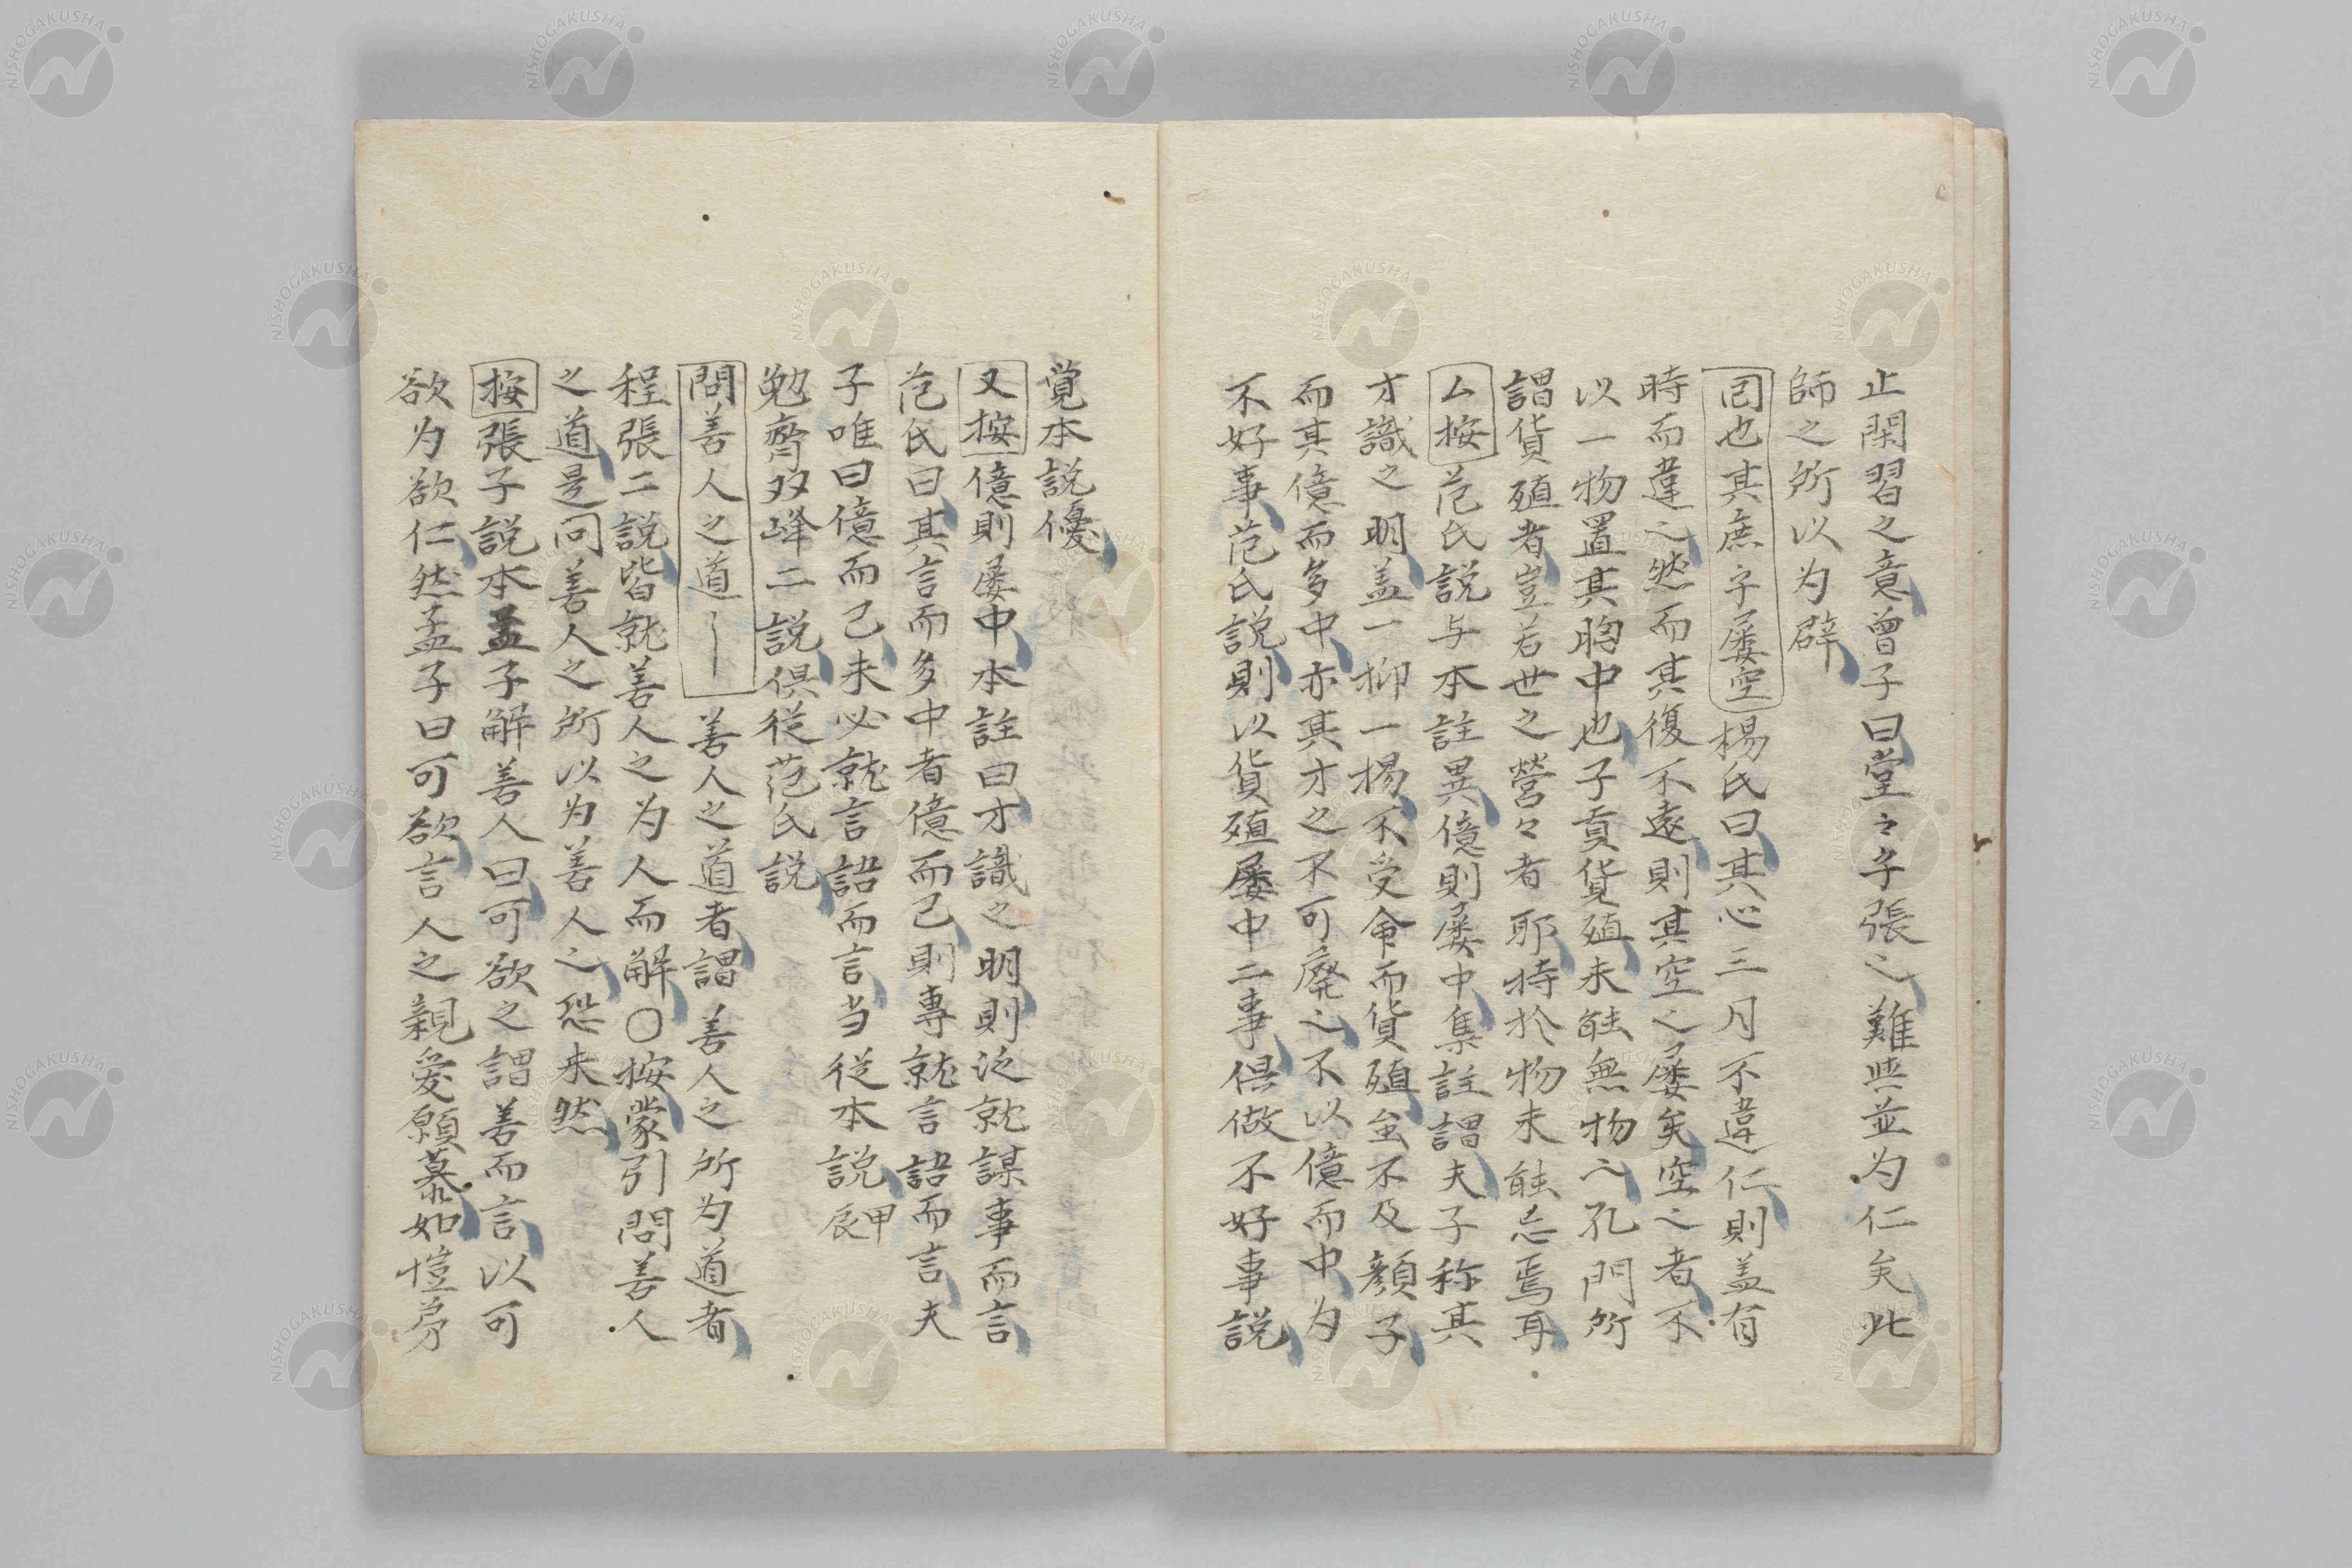 止閑習之意曽子曰堂々乎張之難与並为仁矣此
師之所以为辟
回也其庶乎屡空楊氏曰其心三月不違仁則盖有
時而違之然而其復不遠則其空之屡矣空之者不
以一物置其胸中也子貢貨殖未能無物之孔門所
謂貨殖者豈若世之營々者耶特於物未能忘焉耳
ム按范氏説与本註異億則屡中集註謂夫子称其
才識之明盖一抑一揚不受命而貨殖至不及顔子
而其億而多中亦其才之不可廃之不以億而中为
不好事范氏説則以貨殖屡中二事倶做不好事説
覚本説優
又按億則屡中本註曰才識之明則泛就謀事而言
范氏曰其言而多中者億而已則専就言語而言夫
子唯曰億而已未必就言語而言当従本説甲辰
勉齊双峰二説倶従范氏説
問善人之道〳〵善人之道者謂善人之所为道者
程張二説皆就善人之为人而解〇按蒙引問善人
之道是问善人之所以为善人之恐未然
按張子説本孟子解善人曰可欲之謂善而言以可
欲为欲仁然孟子曰可欲言人之親愛願慕如愷弟
NISHOGAKUSHA